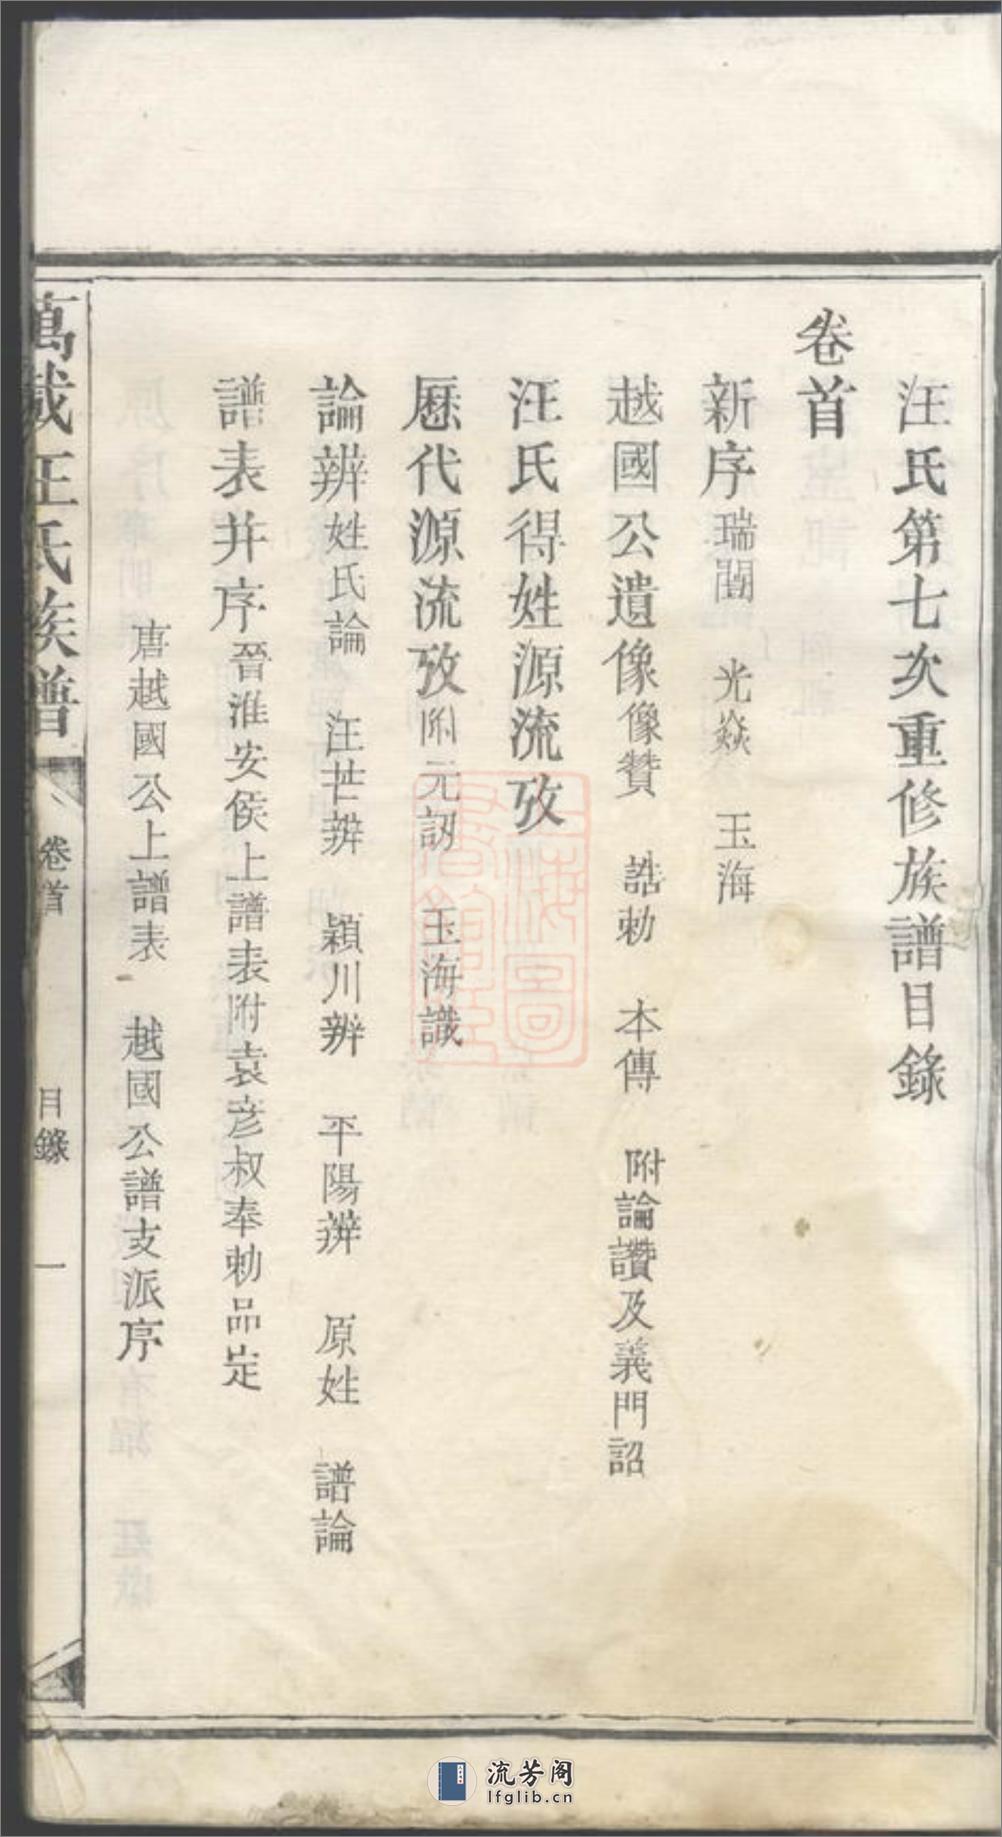 汪氏第七次重修族譜目錄
卷首
新序 瑞闓 光焱 玉海
越國公遺像 像贊 誥勅 本傳 附論讚及義門詔
汪氏得姓源流攷
歷代源流攷 附元訒 玉海識
論辨 姓氏論 汪芒辨 潁川辨 平陽辨 原姓 譜論
譜表并序 晉淮安侯上譜表附袁彥叔奉勅品定
唐越國公上譜表 越國公譜支派序
萬載汪氏族譜 卷首 目錄 一
上海圖書館藏
流芳阁
lfglib.cn